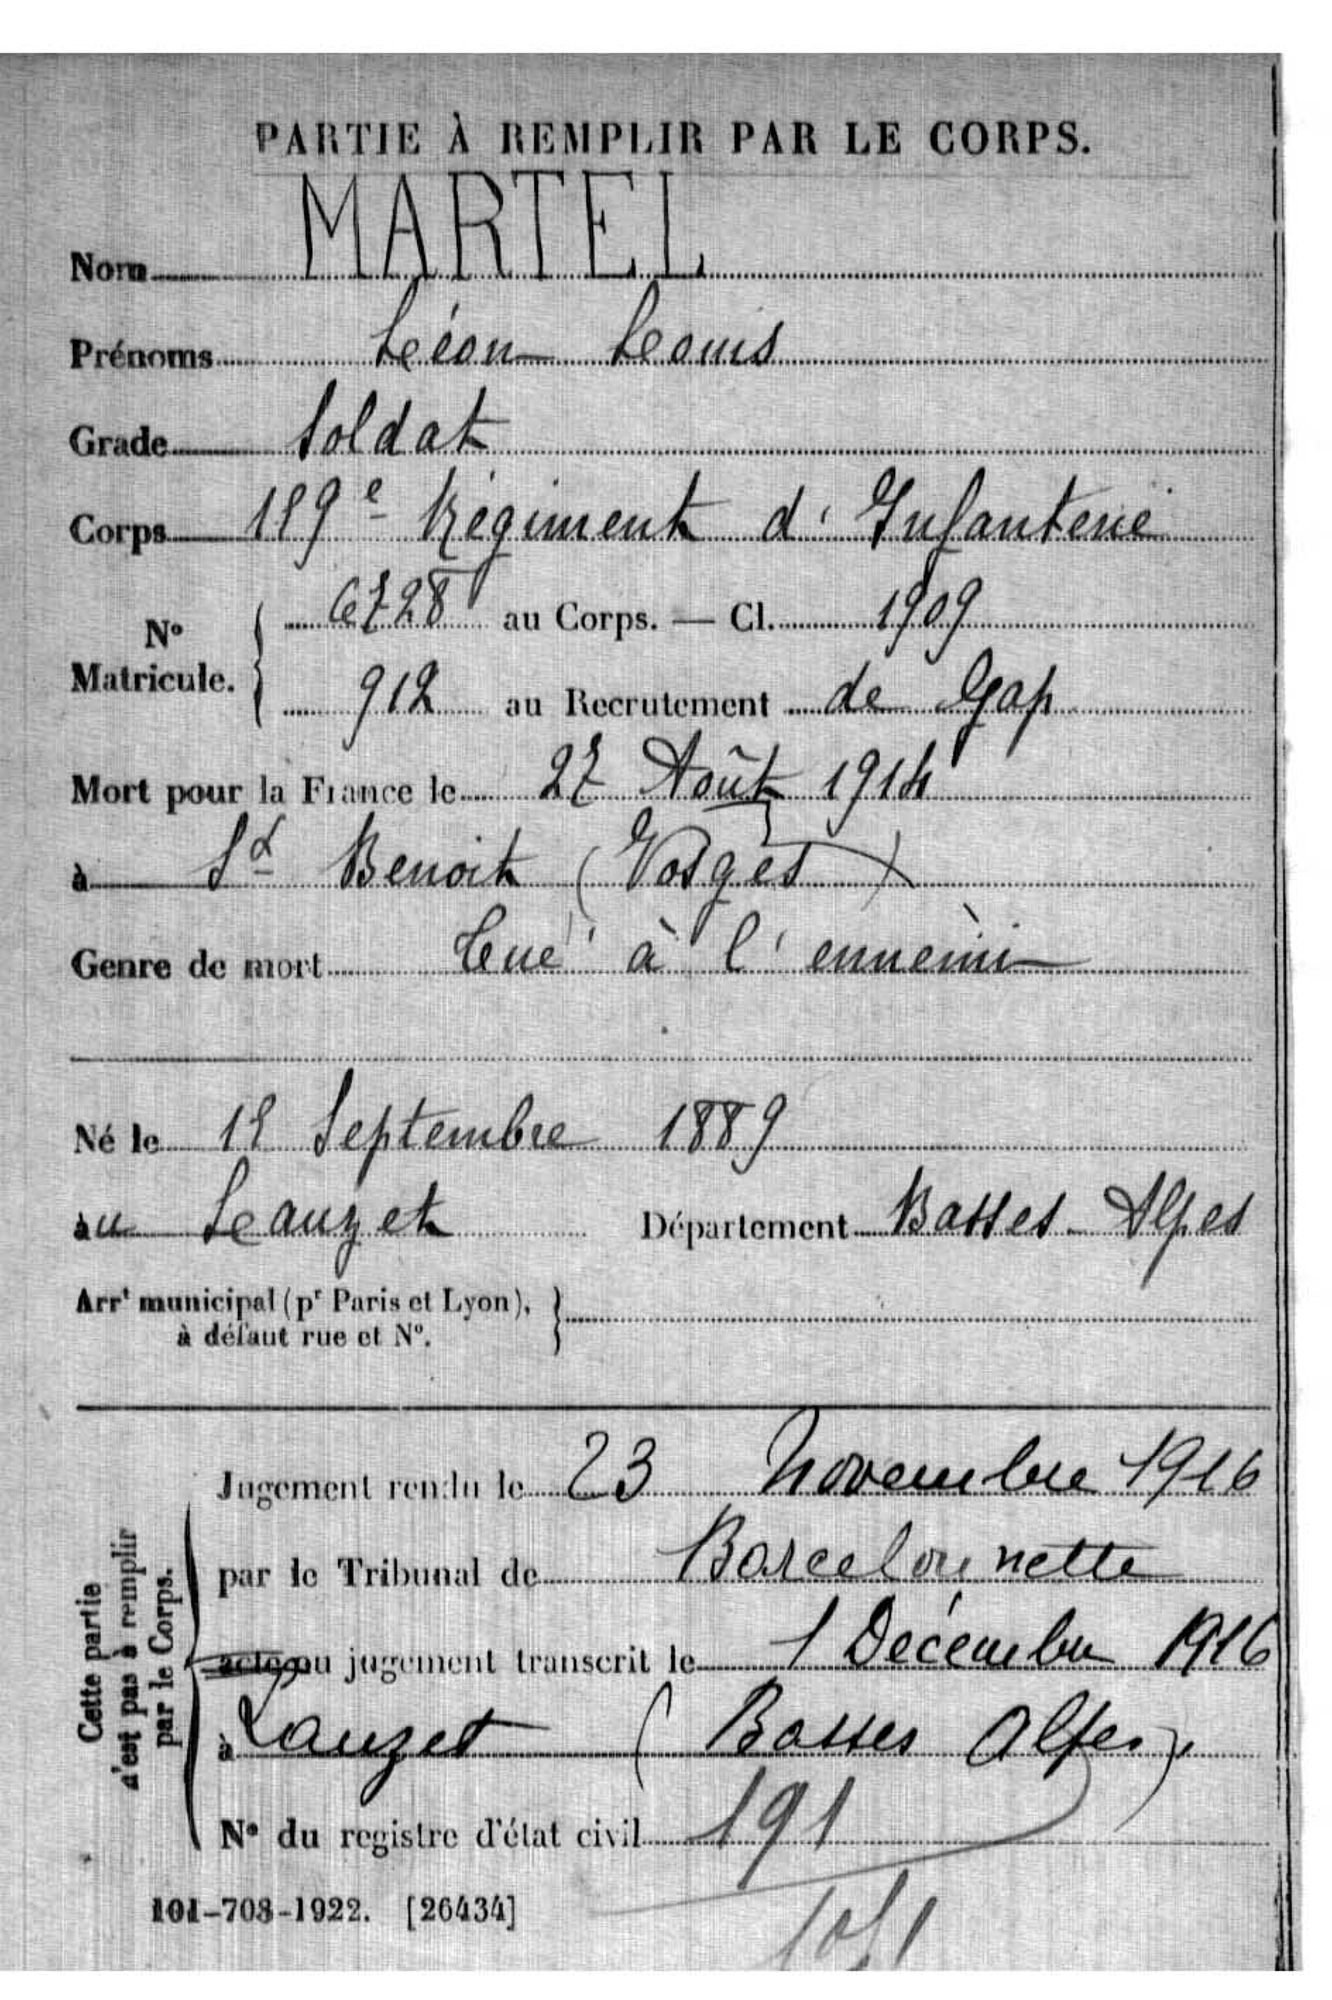 PARTIE À REMPLIR PAR LE CORPS.
Nom MARTEL
Prénoms Léon Louis
Grade Soldat
Corps 159e Régiment d'Infanterie
N° Matricule. 6728 au Corps. — Cl. 1909
912 au Recrutement de Gap
Mort pour la France le 27 Août 1914
à St Benoit (Vosges)
Genre de mort Tué à l'ennemi
Né le Septembre 1889
au Lauzet Département Basses-Alpes
Arrt municipal (pr Paris et Lyon),
à défaut rue et N°.
Cette partie
n'est pas à remplir
par le Corps.
Jugement rendu le 23 Novembre 1916
par le Tribunal de Barcelonnette
acte ou jugement transcrit le 1 Décembre 1916
à Lauzet (Basses Alpes),
N° du registre d'état civil 191
101-708-1922. [26434]